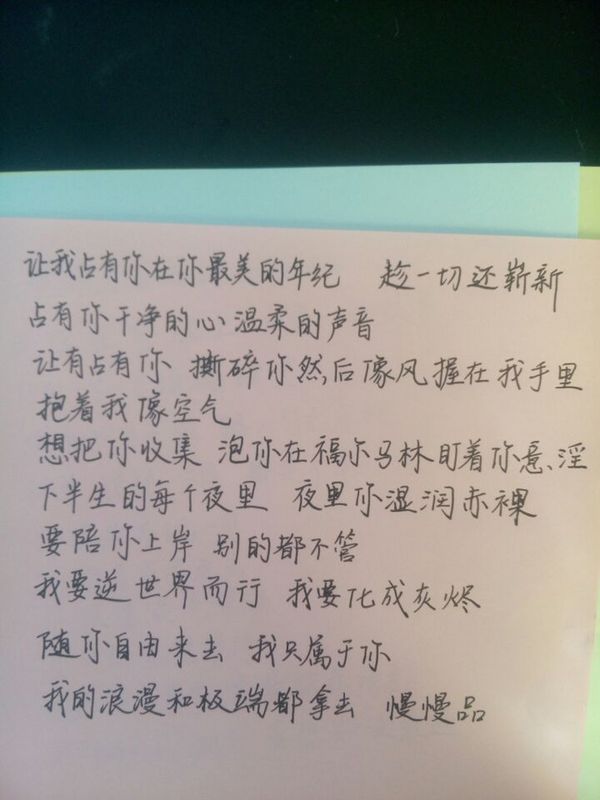 让我占有你在你最美的年纪 趁一切还崭新
占有你干净的心 温柔的声音
让有占有你 撕碎你然后像风握在我手里
抱着我像空气
想把你收集 泡你在福尔马林盯着你意淫
下半生的每个夜里 夜里你湿润赤裸
要陪你上岸 别的都不管
我要逆世界而行 我要化成灰烬
随你自由来去 我只属于你
我的浪漫和极端都拿去 慢慢品